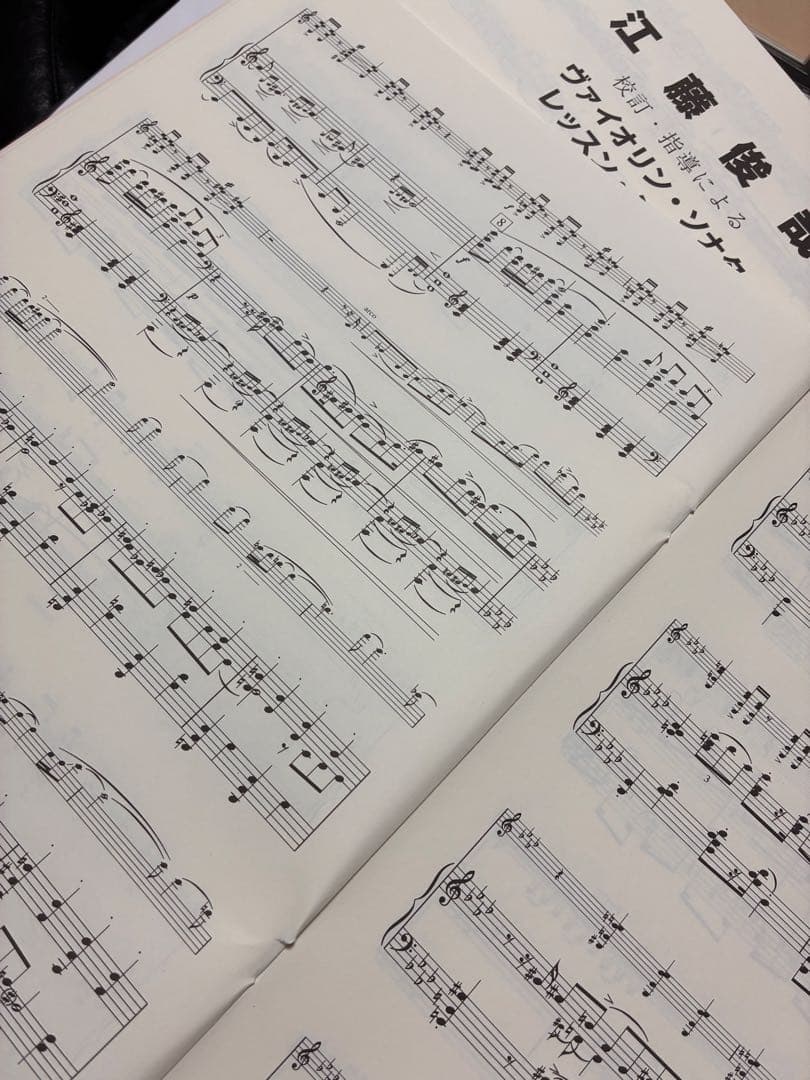 江藤俊哉
校訂・指導による
ヴァイオリン・ソナタ
レッスン・
8
arco
3
3